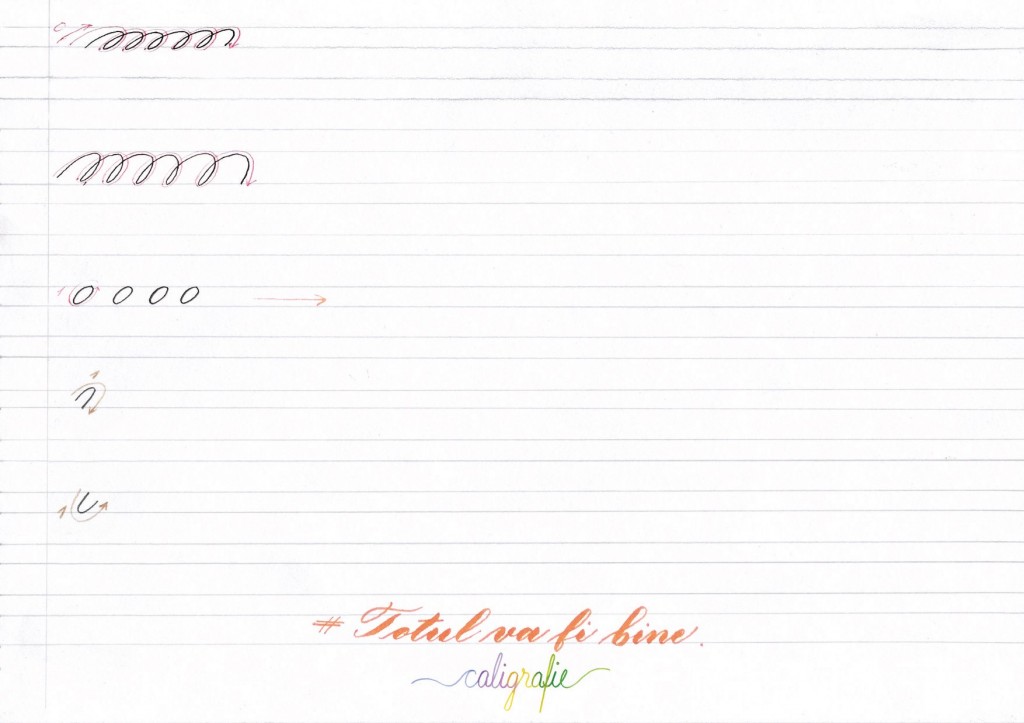 # Totul va fi bine.
caligrafie